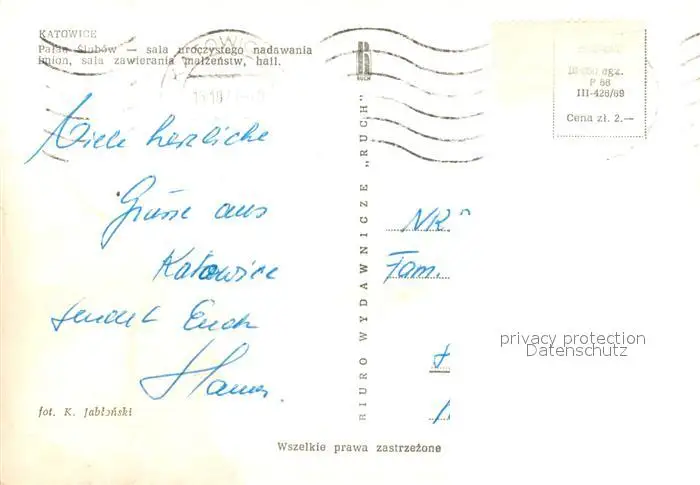 KATOWICE
Pałac Ślubów — sala uroczystego nadawania
imion, sala zawierania małżeństw, hall.
RUCH
P 68
III-428/69
Cena zł. 2.—
Viele herzliche
Grüsse aus
Katowice
sendet Euch
Hanna.
BIURO WYDAWNICZE „RUCH"
NRF
Fam.
privacy protection
Datenschutz
fot. K. Jabłoński
Wszelkie prawa zastrzeżone